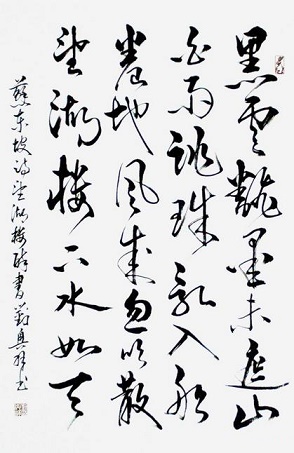 黑雲翻墨未遮山
白雨跳珠亂入船
卷地風來忽吹散
望湖樓下水如天
蘇東坡詩望湖樓醉書